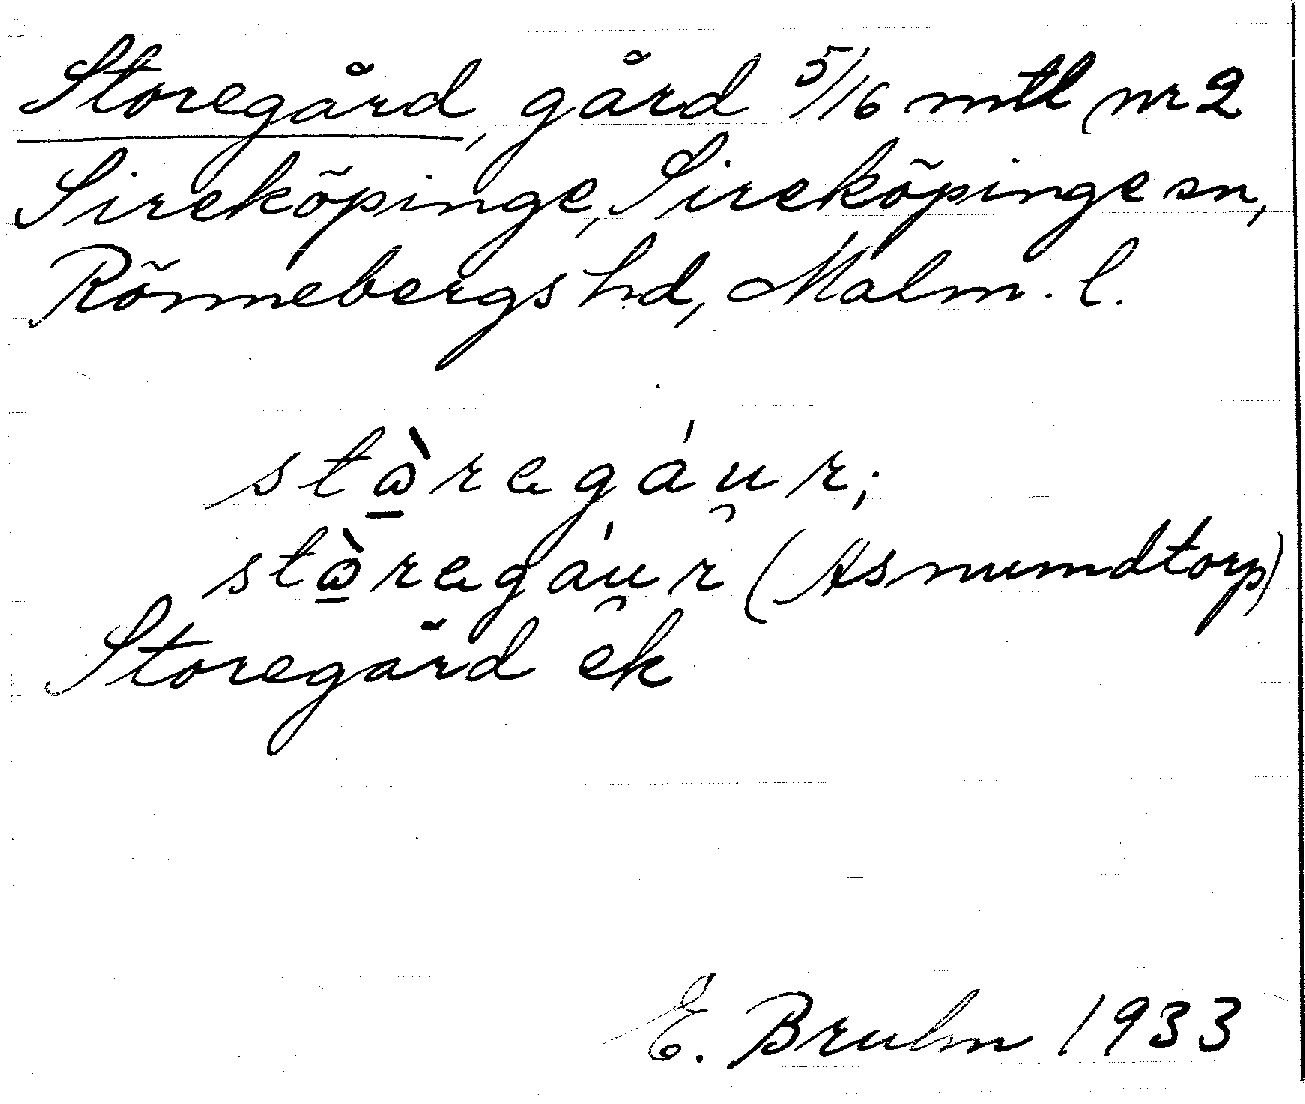 Storegård, gård 5/16 mtl nr 2
Sireköpinge, Sireköpinge sn,
Rönnebergs hd, Malm. l.
stàregáu̯r;
stàregáu̯r (Asmumdtorp)
Storegård ek
E. Bruhn 1933